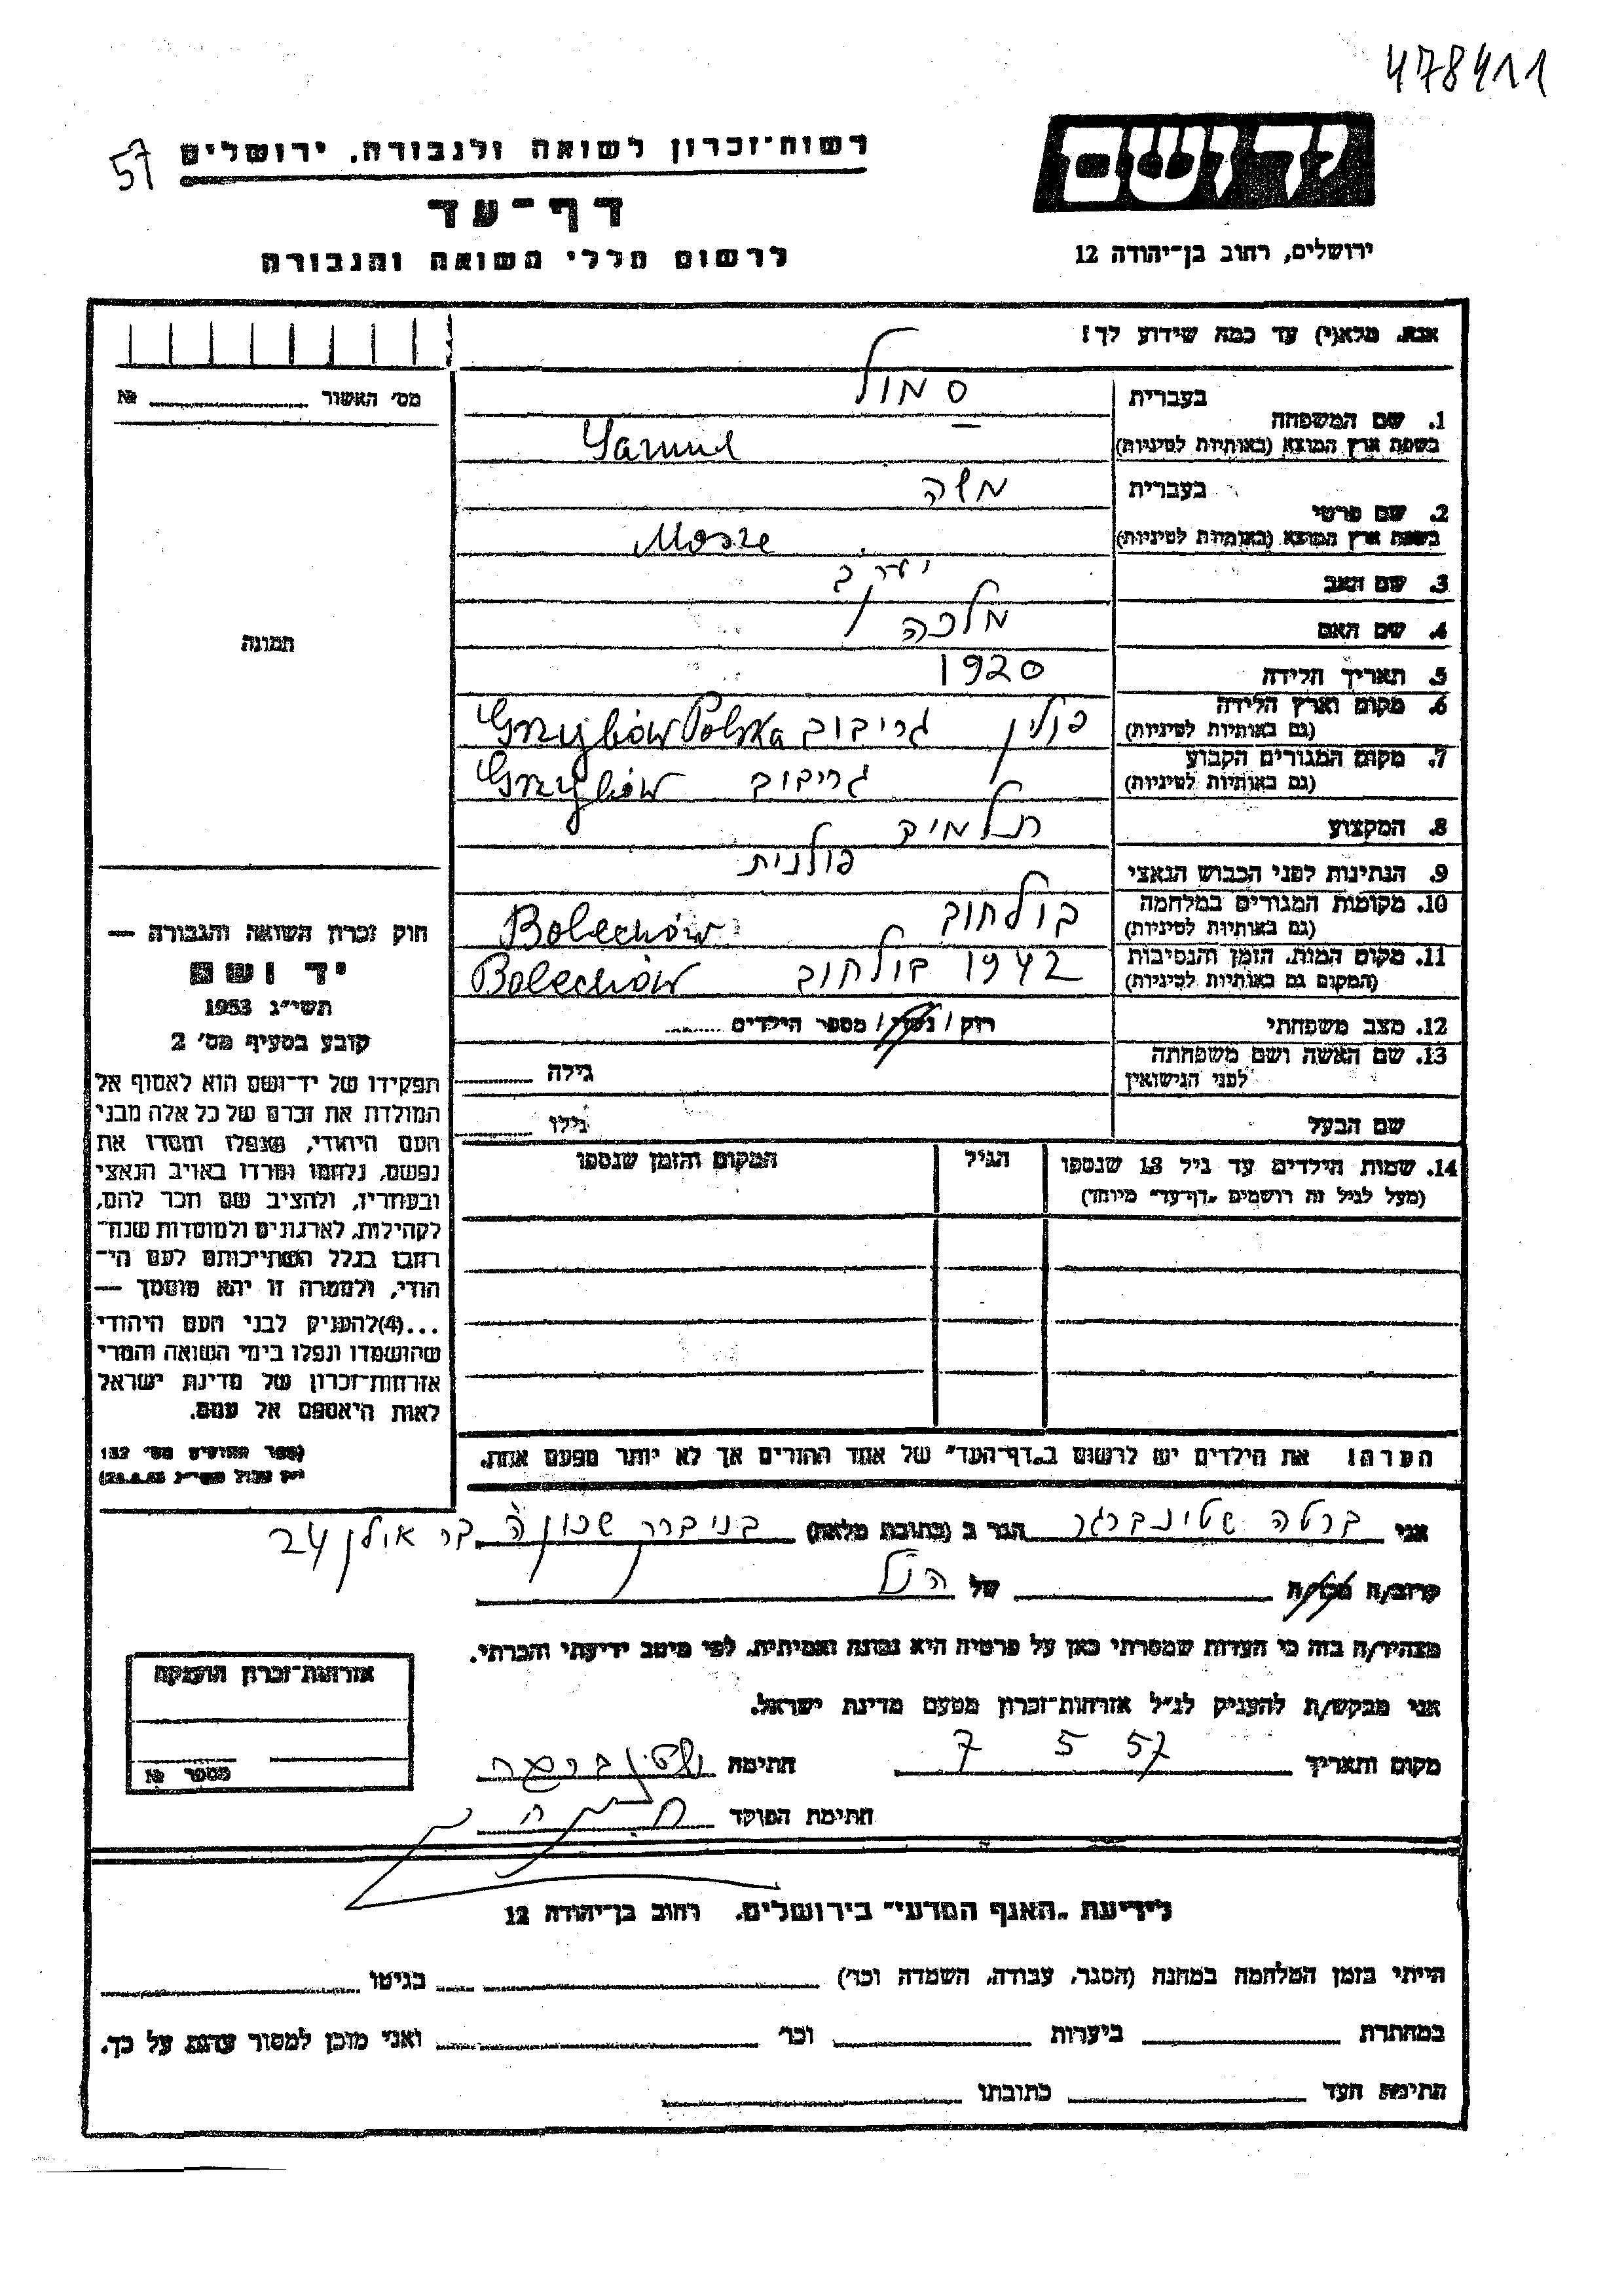 478411
57
רשות־זכרון לשואה ולגבורה. ירושלים
יד ושם
דף־עד
ירושלים, רחוב בן־יהודה 12
לרשום חללי השואה והגבורה
אנא. מלא(י) עד כמה שידוע לך!
מס׳ האשור № 
בעברית
סמול
1. שם המשפחה
בשפת ארץ המוצא (באותיות לטיניות)
Samul
בעברית
משה
2. שם פרטי
בשפת ארץ המוצא (באותיות לטיניות)
Mosze
3. שם האב יעקב
4. שם האם מלכה
תמונה
5. תאריך הלידה 1920
6. מקום וארץ הלידה
(גם באותיות לטיניות)
פולין גריבוב Grzybów Polska
7. מקום המגורים הקבוע
(גם באותיות לטיניות)
גריבוב Grzybów
8. המקצוע תלמיד
9. הנתינות לפני הכבוש הנאצי פולנית
10. מקומות המגורים במלחמה
(גם באותיות לטיניות)
בולחוב Bolechów
11. מקום המות. הזמן והנסיבות
(המקום גם באותיות לטיניות)
1942 בולחוב Bolechów
12. מצב משפחתי רוק / נשוי / מספר הילדים
13. שם האשה ושם משפחתה
לפני הנישואין
גילה
שם הבעל גילו
14. שמות הילדים עד גיל 18 שנספו
(מעל לגיל זה רושמים „דף־עד” מיוחד)
הגיל
המקום והזמן שנספו
חוק זכרון השואה והגבורה —
יד ושם
תשי״ג 1953
קובע בסעיף מס׳ 2
תפקידו של יד־ושם הוא לאסוף אל
המולדת את זכרם של כל אלה מבני
העם היהודי, שנפלו ומסרו את
נפשם, נלחמו ומרדו באויב הנאצי
ובעוזריו, ולהציב שם וזכר להם,
לקהילות, לארגונים ולמוסדות שנח־
רבו בגלל השתייכותם לעם הי־
הודי, ולמטרה זו יהא מוסמך —
...(4)להעניק לבני העם היהודי
שהושמדו ונפלו בימי השואה והמרי
אזרחות־זכרון של מדינת ישראל
לאות היאספם אל עמם.
(ספר החוקים מס׳ 132
הערה! את הילדים יש לרשום ב„דף־העד” של אחד ההורים אך לא יותר מפעם אחת.
אני ברטה שטינברגר הגר ב (כתובת מלאה) בני ברק שכונה ה בר אילן 24
קרוב/ה מכר/ה של הנ״ל
מצהיר/ה בזה כי העדות שמסרתי כאן על פרטיה היא נכונה ואמיתית. לפי מיטב ידיעתי והכרתי.
אני מבקש/ת להעניק לנ״ל אזרחות־זכרון מטעם מדינת ישראל.
מקום ותאריך 7 5 57 חתימה
חתימת הפוקד
אזרחות־זכרון הוענקה
מספר №
לידיעת „האגף המדעי” בירושלים. רחוב בן־יהודה 12
הייתי בזמן המלחמה במחנה (הסגר, עבודה, השמדה וכו׳) בגיטו
במחתרת ביערות וכו׳ ואני מוכן למסור עדות על כך.
חתימת העד כתובתו